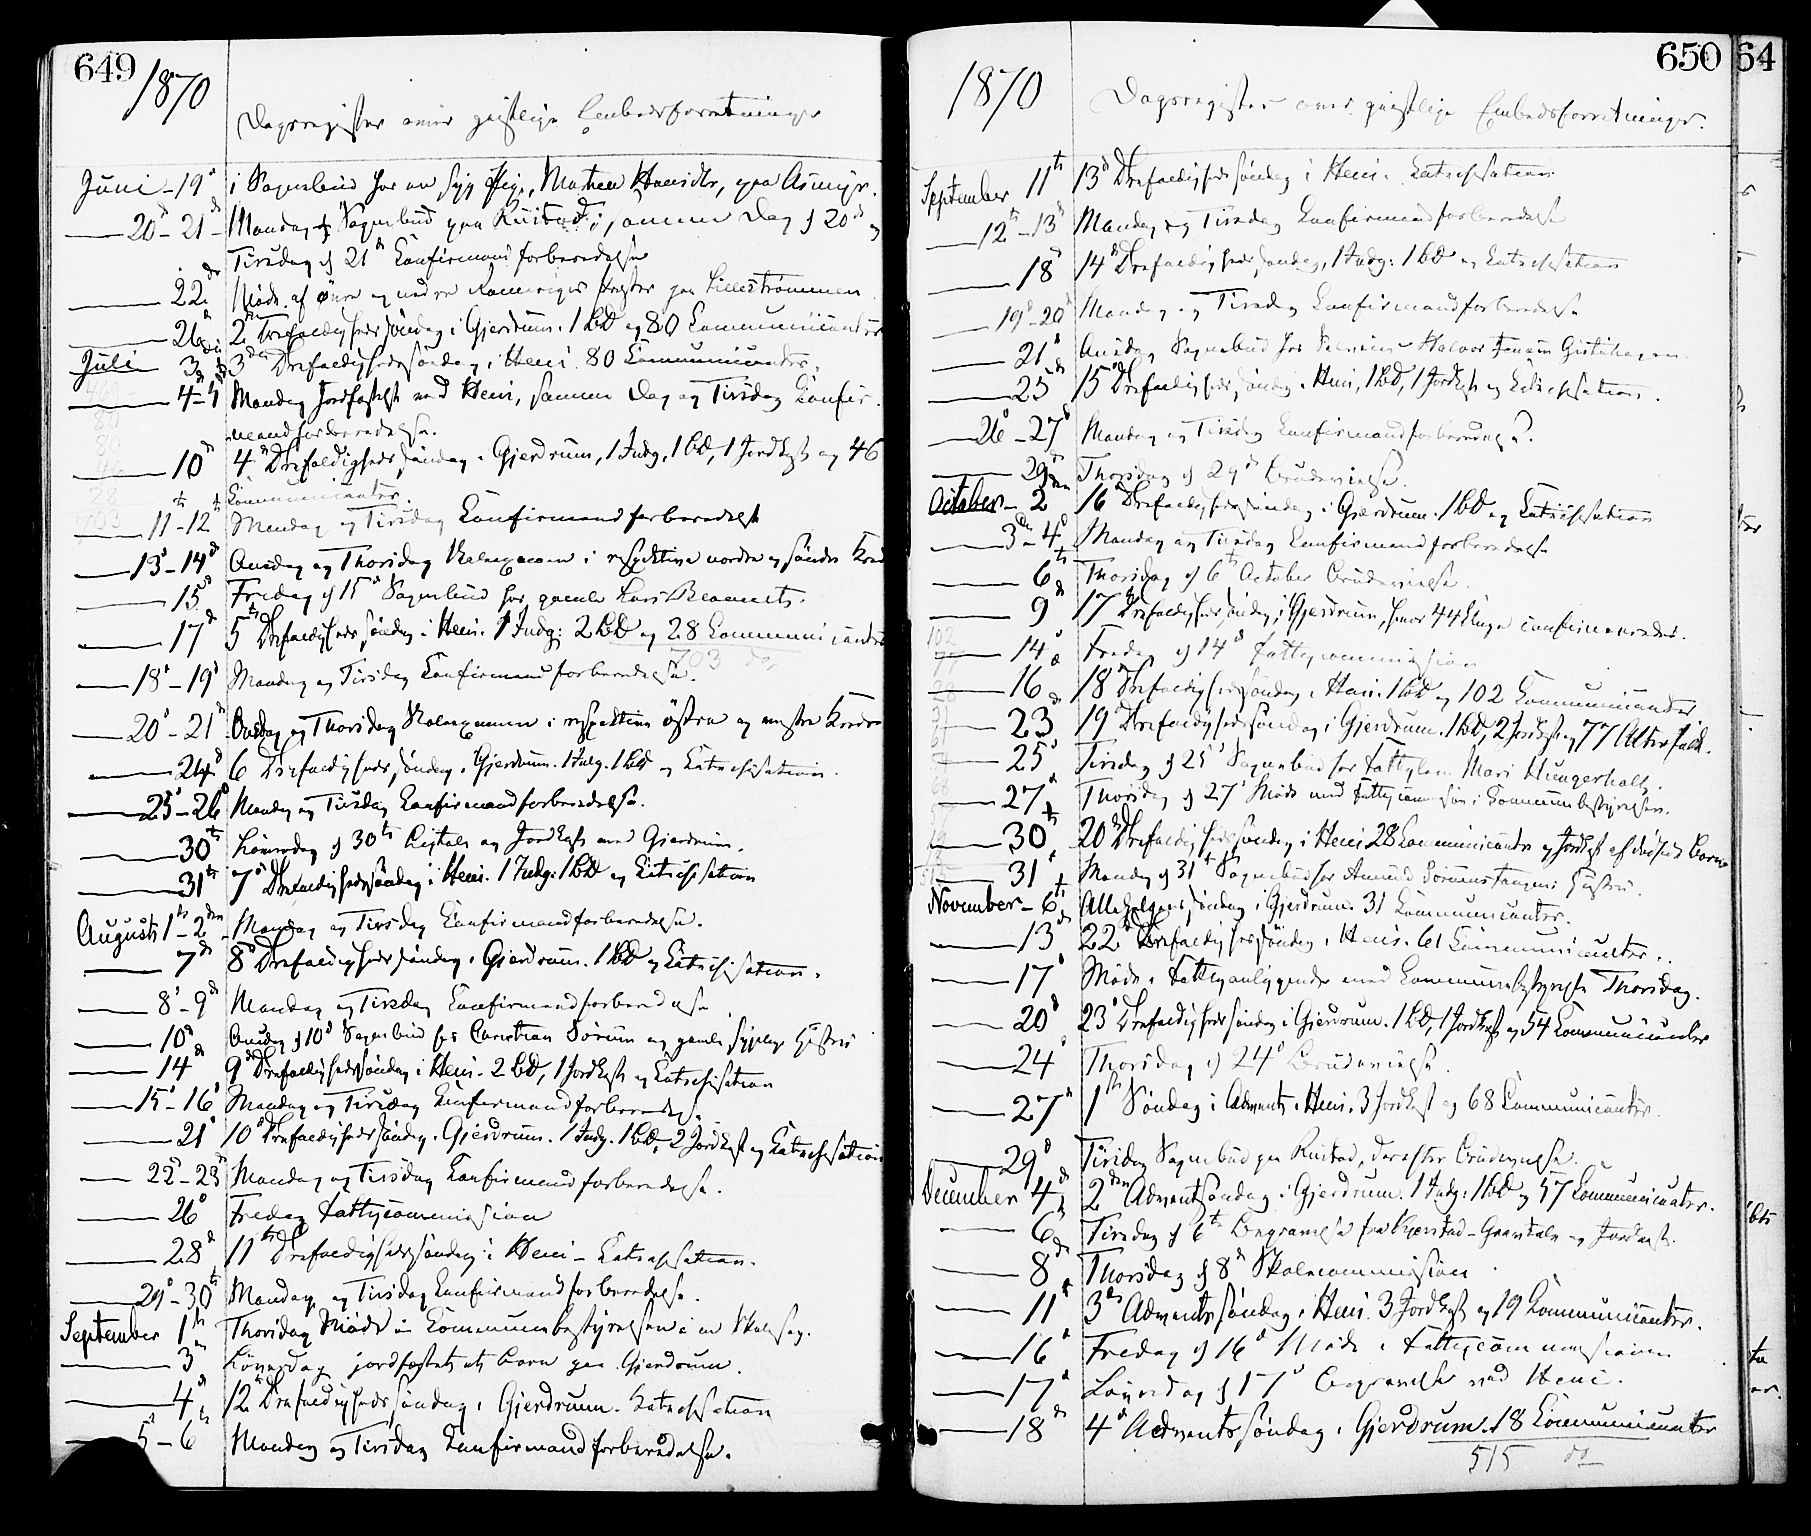 649
1870
Dagsregister over geistlige Embedsforretninger
Juni - 19d i Sognebud hos en syg Pige, Mathea Hansdtr, paa Asmyr.
20d - 21d Mandag Sognebud paa Rustad; samme Dag d 20d og
Tirsdag d 21d Confirmandforberedelse
22de Møde af øvre og nedre Romeriges Prester paa Lillestrømmen
26d 2den Trefoldighedssøndag i Gjerdrum. 1 bD og 80 Communicanter
Juli 3die 3die Trefoldighedssøndag i Heni. 80 Communicanter.
4d - 5 Mandag Jordfæstelse ved Heni, samme Dag og Tirsdag Confir-
mandforberedelse.
10d 4d Trefoldigheds søndag i Gjerdrum, 1 Indg, 1 bD, 1 Jordkast og 46
Communicanter.
11t - 12t Mandag og Tirsdag Confirmandforberedelse
13d - 14d Onsdag og Thorsdag Skoleexamen i respektive nordre og søndre Kreds
15d Fredag d 15d Sognebud hos gamle Lars
17d 5te Trefoldigheds søndag i Heni. 1 Indg: 2 bD og 28 Communicanter
703 do
18d - 19d Mandag og Tirsdag Confirmandforberedelse.
20d - 21d Onsdag og Thorsdag Skoleexamen i respektive østre og vestre Kredse
24d 6 Trefoldigheds søndag i Gjerdrum. 1 Indg. 1 bD og Catechisation.
25d - 26d Mandag og Tirsdag Confirmandforberedelse.
30te Løverdag d 30te Ligtale og Jordkast ved Gjerdrum.
31te 7d Trefoldighedssøndag i Heni. 1 Indg: 1 bD og Catechisation
August 1te - 2den Mandag og Tirsdag Confirmandforberedelse.
7de 8d Trefoldigheds søndag i Gjerdrum. 1 bD og Catechisation.
8d - 9d Mandag og Tirsdag Confirmandforberedelse
10d Onsdag d 10d Sognebud hos Christian Sørum og gamle
14d 9d Trefoldighedssøndag i Heni. 2 bD, 1 Jordkast og Catechisation
15d - 16d Mandag og Tirsdag Confirmandforberedelse.
21d 10d Trefoldigheds søndag i Gjerdrum. 1 Indg. 1 bD, 2 Jordkast og Catechisation
22d - 23d Mandag og Tirsdag Confirmandforberedelse.
26d Fredag Fattigcommission
28d 11te Trefoldighedssøndag i Heni - Catechisation.
29d - 30te Mandag og Tirsdag Confirmandforberedelse.
September 1te Thorsdag Møde i Communebestyrelsen i en Skolesag.
3die Løverdag jordfæstet et Barn paa Gjerdrum.
4d 12d Trefoldigheds søndag i Gjerdrum. Catechisation
5t - 6te Mandag og Tirsdag Confirmandforberedelse.
650
64
1870
Dagsregister over geistlige Embedsforretninger.
September 11te 13d Trefoldighedssøndag i Heni. Catechisation
12te - 13d Mandag og Tirsdag Confirmandforberedelse
18d 14d Trefoldigheds søndag, 1 Indg: 1 bD og Catechisation
19d - 20d Mandag og Tirsdag Confirmandforberedelse.
21d Onsdag Sognebud hos Halvor Jensen
25d 15d Trefoldigheds søndag i Heni, 1 bD, 1 Jordkast og Catechisation.
26d - 27d Mandag og Tirsdag Confirmandforberedelse.
29d Thorsdag d 29d Brudevielse.
October - 2den 16d Trefoldighedssøndag i Gjerdrum. 1 bD og Catechisation
3die - 4d Mandag og Tirsdag Confirmandforberedelse
6te Thorsdag d 6te October Brudevielse.
9d 17d Trefoldigheds søndag i Gjerdrum, hvor 44 Unge confirmeredes.
14d Fredag d 14d Fattigcommission
16d 18d Trefoldighedssøndag i Heni. 1 bD og 102 Communicanter
23d 19d Trefoldighedssøndag i Gjerdrum. 1 bD, 2 Jordkast og 77 Altergæst.
25d Tirsdag d 25d Sognebud hos Fattiglem Mari Hungerholt.
27d Thorsdag d 27d Møde med Fattigcommission i Communebestyrelsen.
30t 20d Trefoldigheds søndag i Heni 28 Communicanter og Jordkast af Børn
31t Mandag d 31t Sognebud hos Amund
November - 6te Allehelgens søndag i Gjerdrum. 31 Communicanter.
13d 22d Trefoldighedssøndag i Heni. 61 Communicanter.
17d Møde i Fattiganliggender med Communebestyrelse Thorsdag.
20d 23d Trefoldighedssøndag i Gjerdrum. 1 bD, 1 Jordkast og 54 Communicanter
24d Thorsdag d 24d Brudevielse.
27d 1ste Søndag i Advent i Heni. 3 Jordkast og 68 Communicanter.
29d Tirsdag Sognebud paa Rustad, derefter Brudevielse.
December 4d 2den Adventssøndag i Gjerdrum. 1 Indg: 1 bD og 57 Communicanter.
6te Tirsdag d 6te Begravelse fra - Gravtale og Jordkast.
8de Thorsdag d 8d Skolecommission
11te 3die Adventssøndag i Heni. 3 Jordkast og 19 Communicanter.
16d Fredag d 16d Møde i Fattigcommissionen
17d Løverdag d 17d Begravelse ved Heni.
18de 4d Adventssøndag i Gjerdrum. 18 Communicanter
515 do